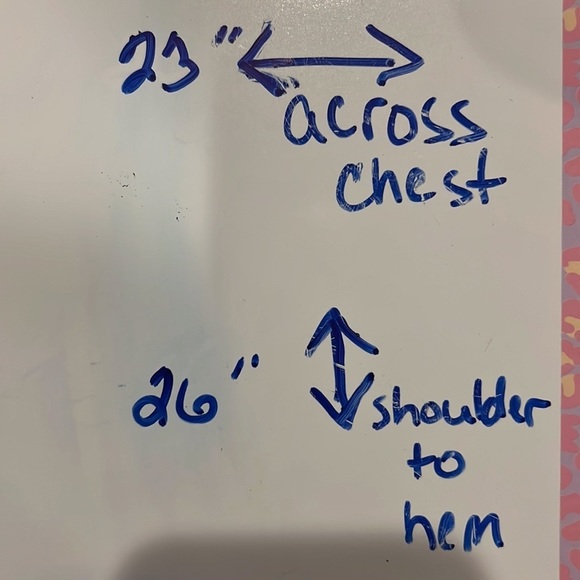 23" across
chest
26" shoulder
to
hem